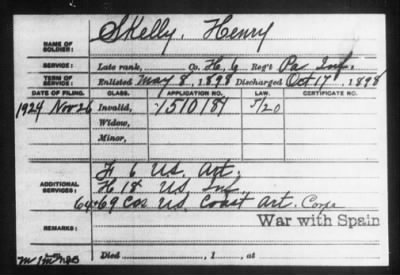 Skelly, Henry
NAME OF SOLDIER:
SERVICE: Late rank, Co. H, 6 Reg't Pa Inf.
TERM OF SERVICE: Enlisted May 8, 1898 Discharged Oct 17, 1898
DATE OF FILING. CLASS. APPLICATION NO. LAW. CERTIFICATE NO.
1924 Nov 26 Invalid, 1510184 5/20
Widow,
Minor,
ADDITIONAL SERVICES: F 6 US. Art.
H 18 US Inf
64+69 Cos US Coast Art. Corps
War with Spain
REMARKS:
Died , 1 , at